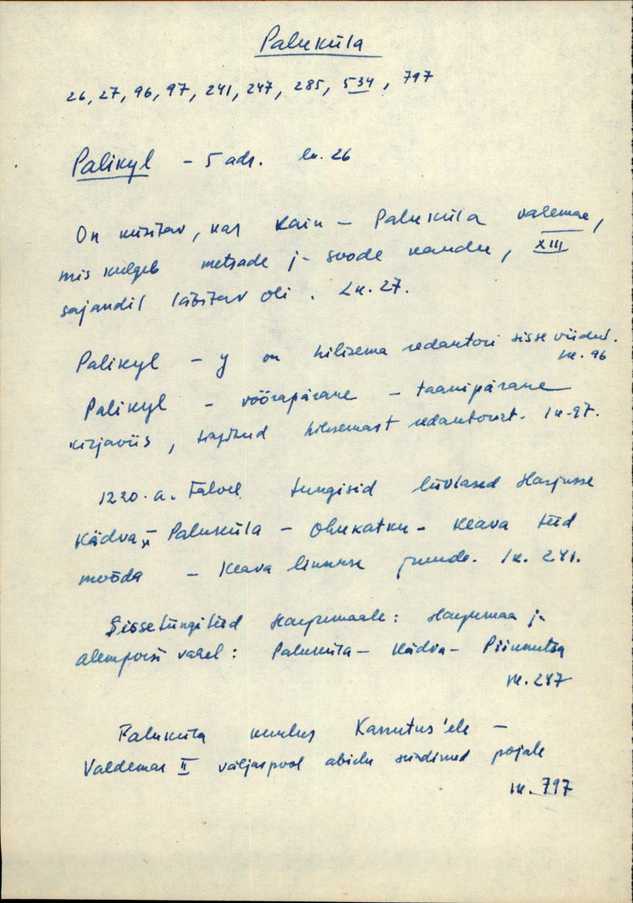 Paluküla
26, 27, 96, 97, 241, 247, 285, 534, 797
Palikyl – 5 adr. lk. 26
On küsitav, kas Kaiu – Paluküla vahemaa,
mis kulgeb metsade ja soode kaudu, XIII
sajandil läbitav oli. Lk. 27.
Palikyl – y on hilisema redaktori sisse viidud.
lk. 96
Palikyl – võõrapärane – taanipärane
kirjaviis, tingitud hilisemast redaktorist. lk. 97.
1220. a. talvel tungisid liivlased Harjusse
Kädva – Paluküla – Ohukatku – Keava teed
mööda – Keava linnuse juurde. lk. 241.
Sissetungiteed Harjumaale: Harjumaa ja
Alempoisi vahel: Paluküla – Kädva – Piiumetsa
lk. 247
Paluküla kuulus Kanutus'ele –
Valdemar II väljaspool abielu sündinud pojale
lk. 797